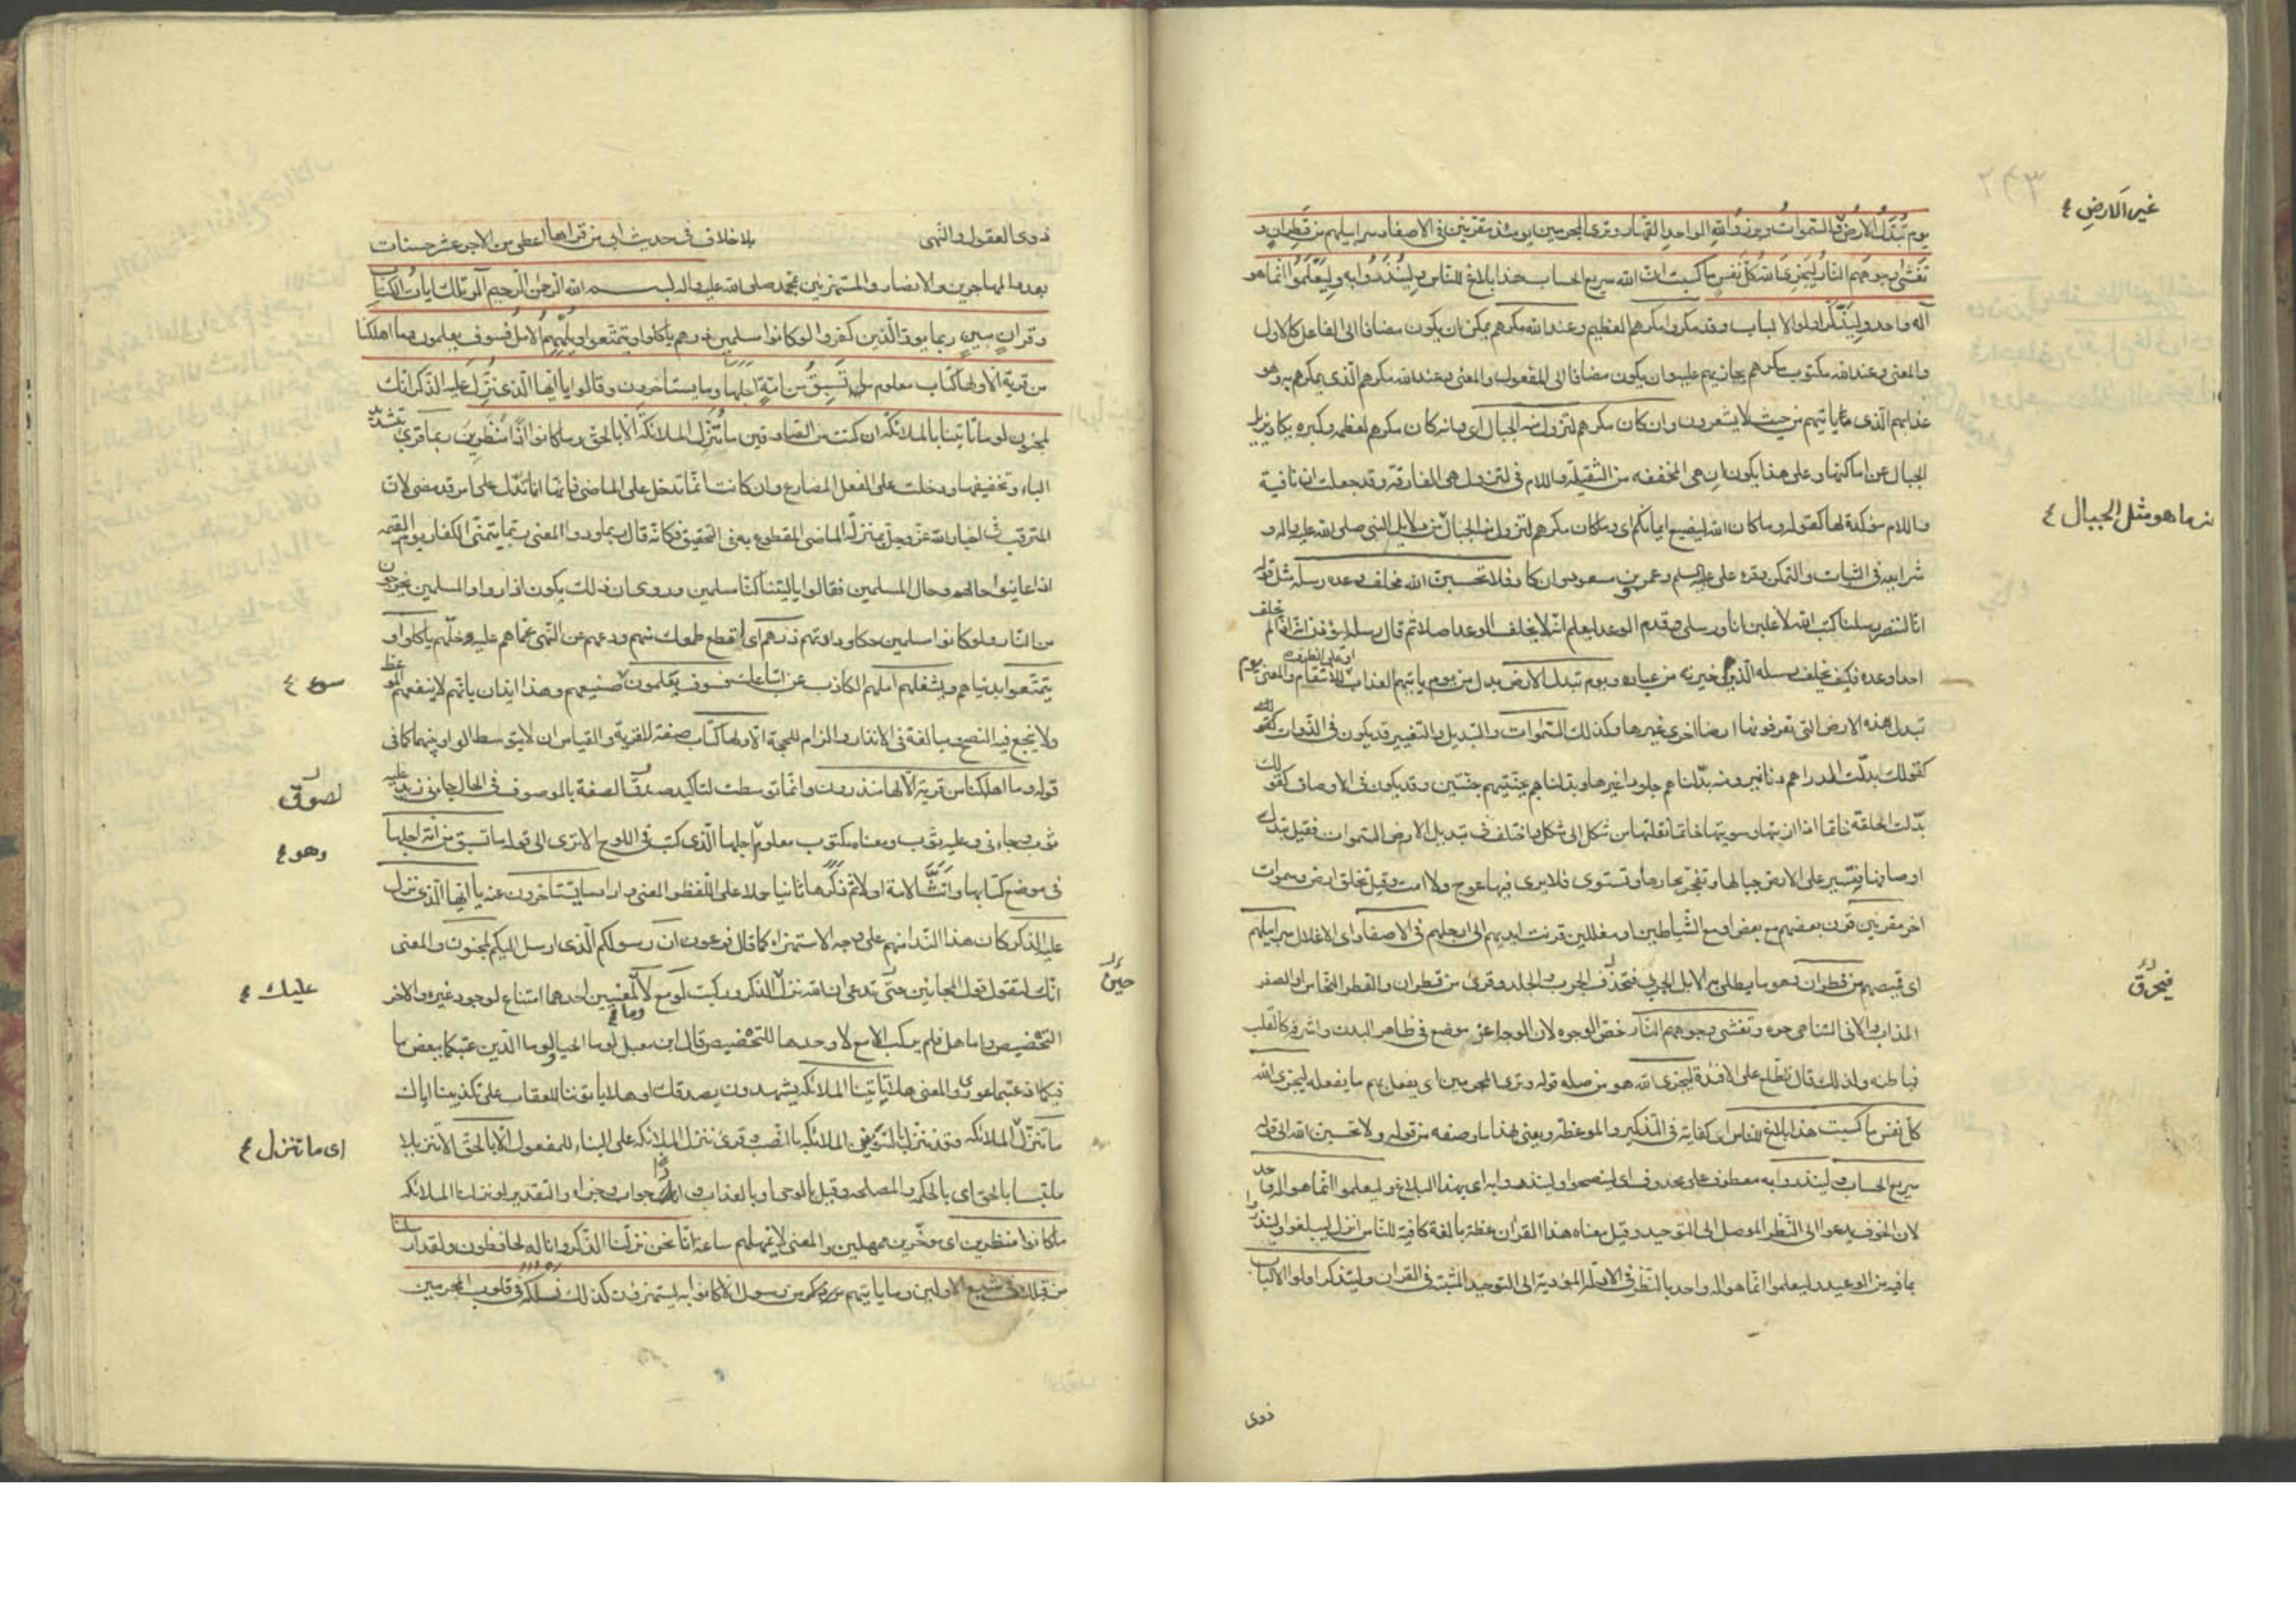 غير الارض ع
يوم تُبَدَّلُ الاَرضُ والسّمواتُ وبرزوا للهِ الواحدِ القهّار وترى المجرمين يومئذ مقرّنين في الاصفاد سرابيلهم من قَطِرانٍ و
تَغشى وجوههم النّارُ ليَجزِيَ اللهُ كلَّ نَفسٍ ما كسبت انّ الله سريع الحساب هذا بلاغ للنّاس ولِيُنذَروا به ولِيَعلَموا انّما هو
اله واحد وليَذّكّر اولوا الالباب وقد مكروا مكرهم العظيم وعند الله مكرهم يمكن ان يكون مضافا الى الفاعل كالاول
والمعنى وعند الله مكتوب مكرهم يجازيهم عليه وان يكون مضافا الى المفعول والمعنى وعند الله مكرهم الّذي يمكرهم به وهو
عذابهم الّذي ياتيهم من حيث لا يشعرون وان كان مكرهم لتزول منه الجبال اي وانه كان مكرهم لعظمه وكبره يكاد يزيل
الجبال عن اماكنها وعلى هذا يكون ان هي المخففه من الثقيله واللام في لتزول هي الفارقة وقد جعلت ان نافية
واللام مؤكدة لها كقوله وما كان الله ليضيع ايمانكم اي وما كان مكرهم لتزول منه الجبال من دلايل النبي صلى الله عليه واله و
نه ما هو مثل الجبال ع
شرايعه في الثبات والتمكن وقرء علي عليه السلم وعمر وبن مسعود وان كاد فلا تحسبنّ الله مخلف وعده رسله مثل قوله
انّا لننصر رسلنا كتب الله لاغلبن انا ورسلي وقدم الوعد ليعلم انّه لا يخلف الوعد اصلا ثم قال رسله ليؤذن انه اذا لم يخلف
احدا وعده فكيف يخلف رسله الّذين هم خيرته من عباده ويوم تبدل الارض بدل من يوم ياتيهم العذاب او على الظرف للانتقام والمعنى يوم
تبدل هذه الارض التي تعرفونها ارضا اخرى غيرها وكذلك السّموات والتبديل والتغيير قد يكون في الذّوات
كقولك بدّلت الدراهم دنانير ومنه بدّلناهم جلودا غيرها وبدلناهم بجنّتيهم جنّتين وقد يكون في الاوصاف كقولك
بدّلت الحلقة خاتما اذا اذبتها وسويتها خاتما فنقلتها من شكل الى شكل واختلف في تبديل الارض والسّموات فقيل تبدل
اوصافها فتسير على الارض جبالها وتفجر بحارها وتستوى فلا يرى فيها عوج ولا امت وقيل تخلق ارض وسموات
اخر مقرنين قرن بعضهم مع بعض او مع الشّياطين او مغللين قرنت ايديهم الى ارجلهم في الاصفاد اي الاغلال سرابيلهم
اي قمصهم من قطران وهو ما يطلى به الابل الجربى فتحذف الجرب والجلد وقرئ من قطران والقطر النّحاس او الصفر
فيحرق
المذاب والانى المتناهي حره وتغشى وجوههم النّار خصّ الوجوه لان الوجه اعز موضع في ظاهر البدن واشرفه كالقلب
في باطنه ولذلك قال تطّلع على الافئدة ليجزي الله هو من صله قوله وترى المجرمين اي يفعل بهم ما يفعله ليجزي الله
كل نفس ما كسبت هذا بلاغ للناس اي كفاية في التذكير والموعظة ويعني بهذا ما وصفه من قوله ولا تحسبن الله الى قوله
سريع الحساب ولينذروا به معطوف على محذوف اي لينصحوا ولينذروا به اي بهذا البلاغ وليعلموا انّما هو اله واحد
لان الخوف يدعو الى النّظر الموصل الى التوحيد وقيل معناه هذا القران عظة بالغة كافية للنّاس انزل ليبلغوا ولينذروا
بما فيه من الوعيد وليعلموا انّما هو اله واحد بالنّظر في الادلّه المؤدية الى التوحيد المثبتة في القران وليتذكر اولوا الالباب
ذوى
ذوى العقول والنّهى بلا خلاف في حديث ابي من قراها اعطي من الاجر عشر حسنات
بعدد المهاجرين والانصار والمستهزئين بمحمد صلى الله عليه واله بسم الله الرّحمن الرّحيم الر تلك ايات الكتاب
وقران مبين ربما يودّ الّذين كفروا لو كانوا مسلمين ذرهم ياكلوا ويتمتّعوا ويُلههم الامل فسوف يعلمون وما اهلكنا
من قرية الا ولها كتاب معلوم ما تسبق من امّةٍ اجلها وما يستاخرون وقالوا يا ايّها الّذي نُزّل عليه الذّكر انّك
لمجنون لو ما تاتينا بالملائكة ان كنت من الصّادقين ما نُنَزّل الملائكة الّا بالحقّ وما كانوا اذًا منظرين ربما قرئ بتشديد
الباء وتخفيفها ودخلت على الفعل المضارع وان كانت انّما تدخل على الماضي فانّها انّما تدلّ على امر قد مضى لان
المترقب في اخبار الله عزّ وجلّ بمنزلة الماضي المقطوع به في التحقيق فكانّه قال ربما ود والمعنى ربّما يتمنّى الكفار يوم القيمه
اذا عاينوا حالهم وحال المسلمين فقالوا يا ليتنا كنّا مسلمين وروى ان ذلك يكون اذا راوا المسلمين يخرجون
من النّار ولو كانوا مسلمين حكاية ودادتهم ذرهم اي اقطع طمعك منهم ودعهم عن النّهي عمّا هم عليه وخلّهم ياكلوا و
يتمتّعوا بدنياهم ويشغلهم املهم الكاذب عن اتباعك فسوف يعلمون صنيعهم وهذا ايذان بانّهم لا ينفعهم الوعظ
سوء ع
ولا ينجع فيه النصح ومبالغة في الانذار والزام للحجة الّا ولها كتاب صفة للقرية والقياس ان لا يتوسط الواو بينهما كما في
قوله وما اهلكنا من قرية الّا لها منذرون وانّما توسطت لتاكيد الصفة بالموصوف في الحال جاءني زيد عليه
لصوق
ثوب وجاءني وعليه ثوب ومعناه مكتوب معلوم اجلها الّذي كتب في اللوح الا ترى الى قوله ما تسبق من امّة اجلها
وهو ع
في موضع كتابها وانّث الامة اولا ثم ذكّرها ثانيا حملا على اللّفظ والمعنى واراد ما يستاخرون عنه يا ايّها الّذي نزل
عليه الذكر كان هذا النّداء منهم على وجه الاستهزاء كما قال فرعون انّ رسولكم الّذي ارسل اليكم لمجنون والمعنى
انّك لتقول قول المجانين حتّى تدعى ان الله نزّل الذكر وركبت لو مع لا لمعنيين احدهما امتناع لوجود غيره والاخر
حين
عليك ع
التخضيض واما هل فلم يركب الا مع لا وحدها للتخضيض قال ابن مقبل لو ما الحيا ولو ما الدين عبتكما ببعض ما
فيكما اذ عبتما عورى والمعنى هلا تاتينا الملائكه يشهدون بصدقك او هلا ياتوننا للعقاب على تكذيبنا اياك
ما تنزل الملائكه وقرئ ننزل الملائكه بالنّصب وقرئ تنزل الملائكه على البناء للمفعول الّا بالحقّ الا تنزيلا
اى ما تنزل ع
ملتبسا بالحق اي بالحكمه والمصلحه وقيل بالوحي او بالعذاب و اذًا جواب وجزاء والتقدير لو نزلنا الملائكه
ما كانوا منظرين اي مؤخّرين ممهلين والمعنى لا نمهلهم ساعة انّا نحن نزّلنا الذّكر وانّا له لحافظون ولقد ارسلنا
من قبلك في شيع الاولين وما ياتيهم من رسول الّا كانوا به يستهزؤن كذلك نسلكه في قلوب المجرمين